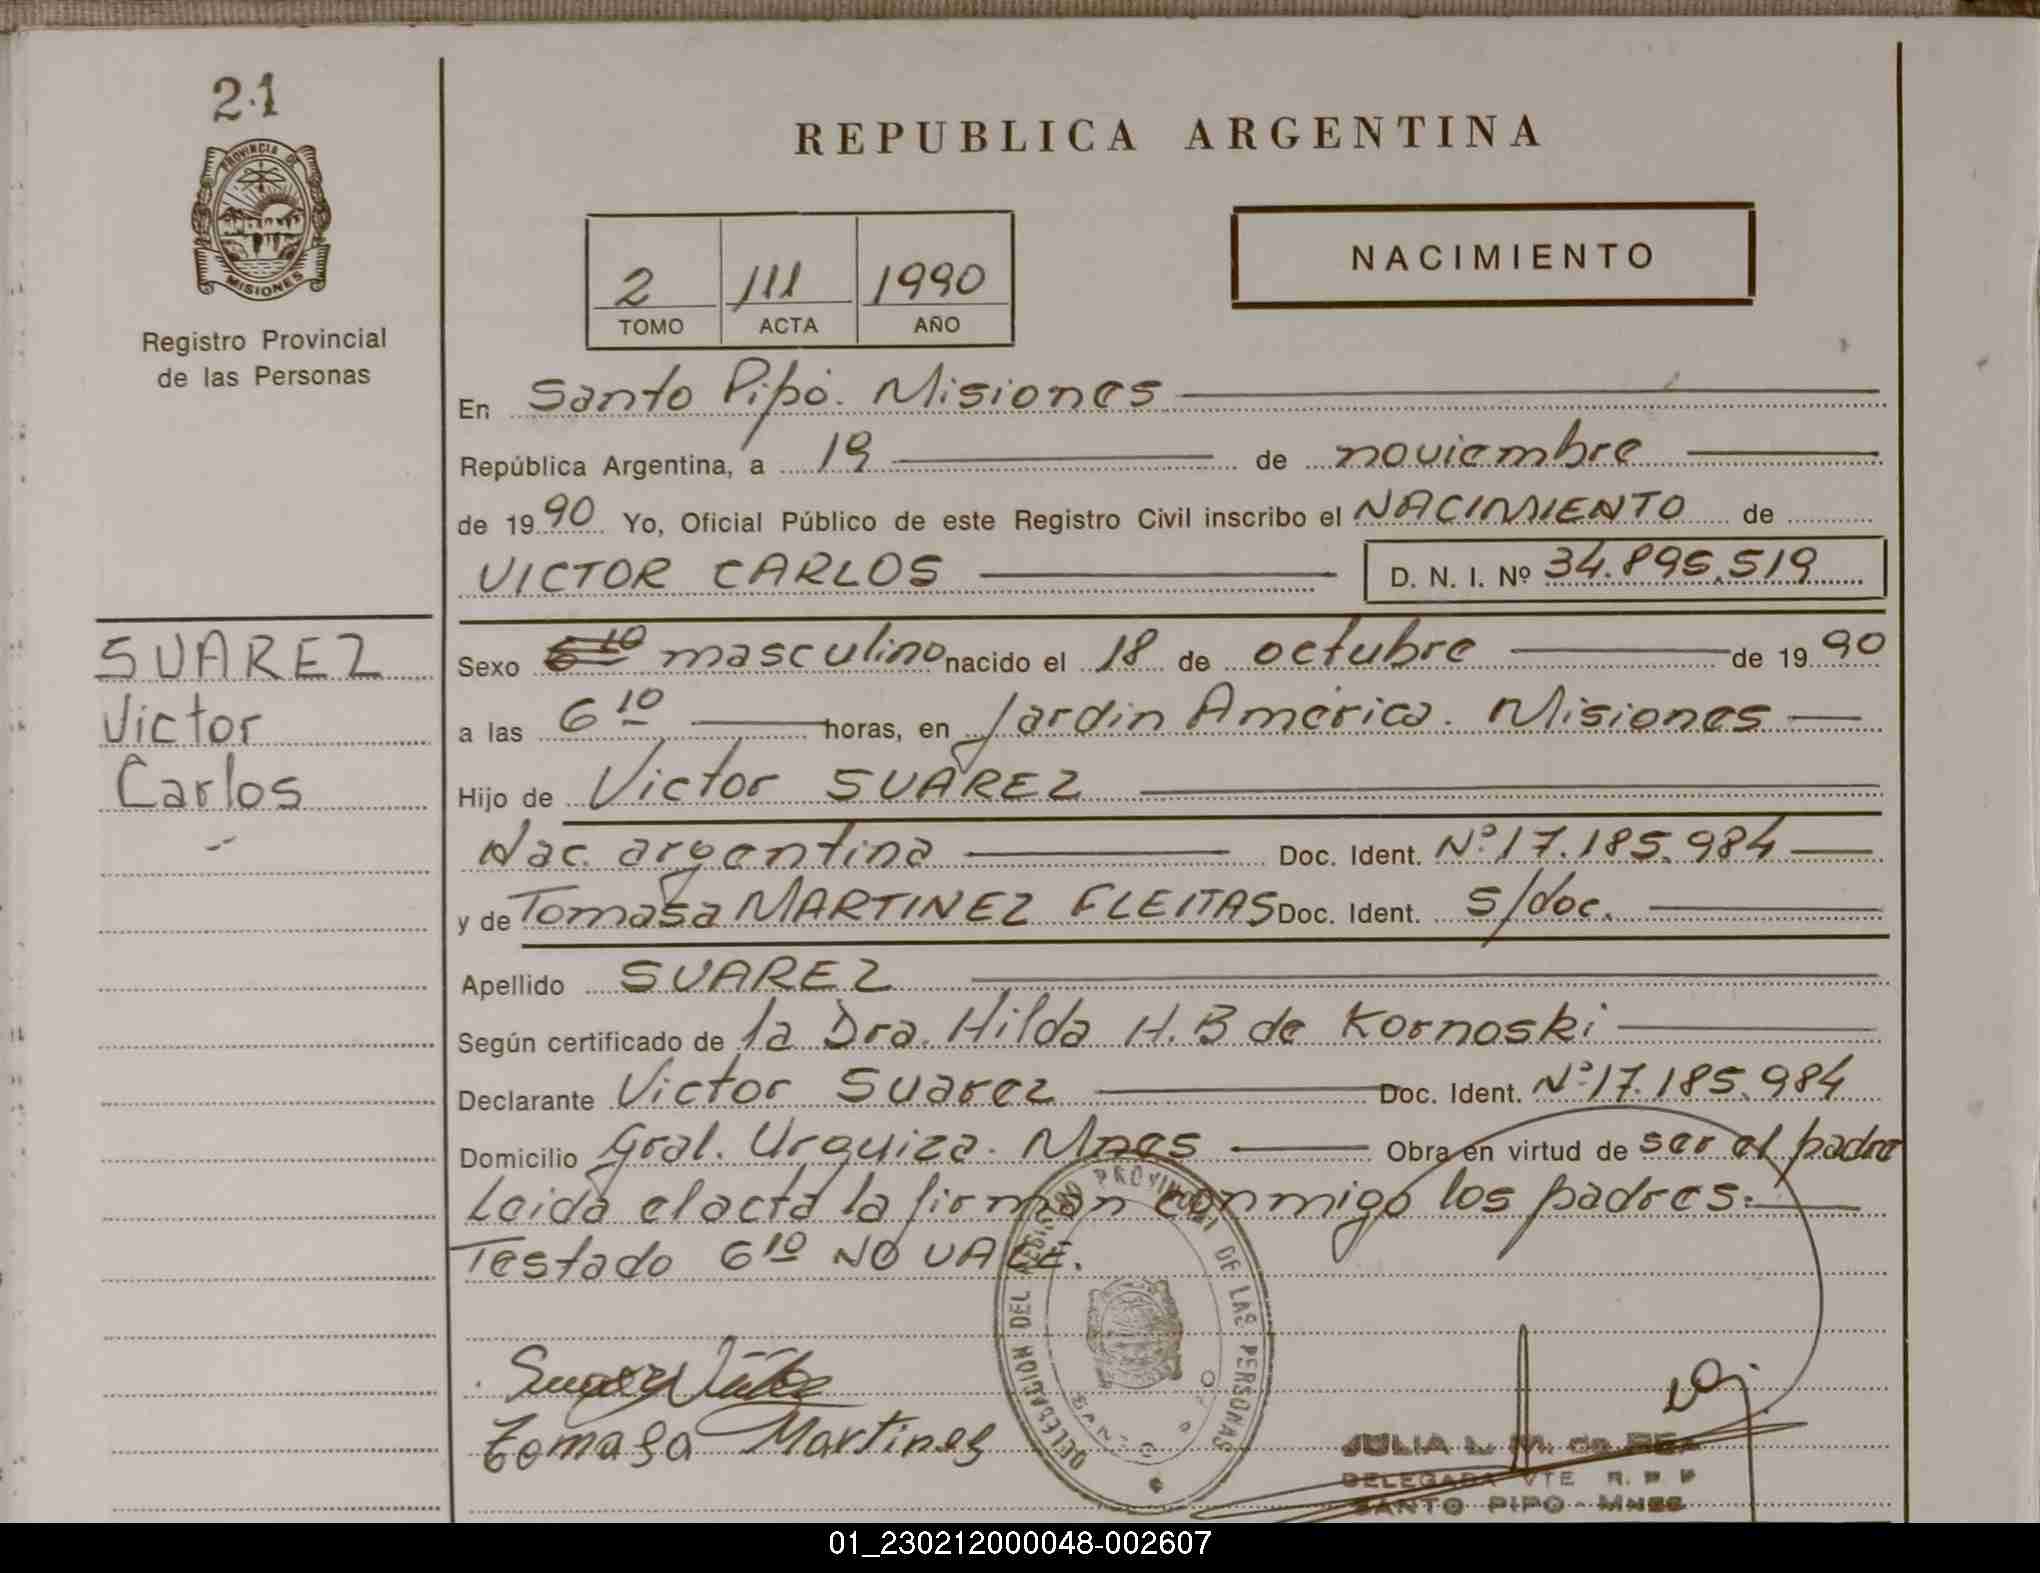 21
PROVINCIA DE
MISIONES
Registro Provincial
de las Personas
REPUBLICA ARGENTINA
2 111 1990
TOMO ACTA AÑO
NACIMIENTO
En Santo Pipó. Misiones
República Argentina, a 19 de noviembre
de 1990 Yo, Oficial Público de este Registro Civil inscribo el NACIMIENTO de
VICTOR CARLOS D. N. I. Nº 34.895.519
SUAREZ
Victor
Carlos
Sexo 6 10 masculino nacido el 18 de octubre de 1990
a las 6 10 horas, en Jardin América. Misiones
Hijo de Victor SUAREZ
Nac. argentina Doc. Ident. Nº 17.185.984
y de Tomasa MARTINEZ FLEITAS Doc. Ident. s/doc.
Apellido SUAREZ
Según certificado de la Dra. Hilda H. B de Kornoski
Declarante Victor Suarez Doc. Ident. Nº 17.185.984
Domicilio Gral. Urquiza. Mnes Obra en virtud de ser el padre
Leida el acta la firman conmigo los padres.
Testado 6 10 NO VALE.
DELEGACION DEL REGISTRO PROVINCIAL DE LAS PERSONAS
Suarez
Tomasa Martines
JULIA L. M. de
DELEGADA VTE R. P. P
SANTO PIPO - MNES
01_230212000048-002607